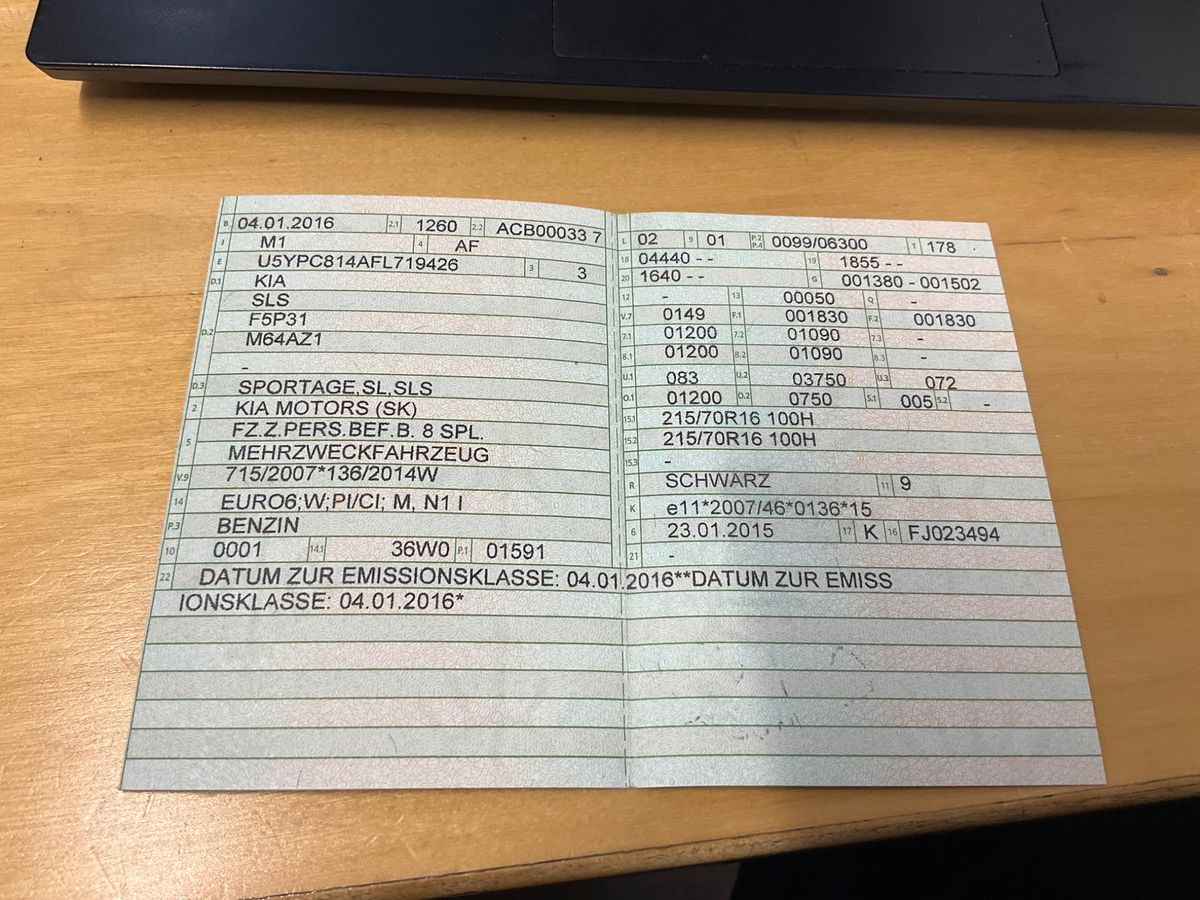 B 04.01.2016 2.1 1260 2.2 ACB00033 7
J M1 4 AF
E U5YPC814AFL719426 3 3
D.1 KIA
SLS
D.2 F5P31
M64AZ1
-
D.3 SPORTAGE,SL,SLS
2 KIA MOTORS (SK)
5 FZ.Z.PERS.BEF.B. 8 SPL.
MEHRZWECKFAHRZEUG
V.9 715/2007*136/2014W
14 EURO6;W;PI/CI; M, N1 I
P.3 BENZIN
10 0001 14.1 36W0 P.1 01591
L 02 9 01 P.2 P.4 0099/06300 T 178
18 04440 - - 19 1855 - -
20 1640 - - G 001380 - 001502
12 - 13 00050 Q -
V.7 0149 F.1 001830 F.2 001830
7.1 01200 7.2 01090 7.3 -
8.1 01200 8.2 01090 8.3 -
U.1 083 U.2 03750 U.3 072
O.1 01200 O.2 0750 S.1 005 S.2 -
15.1 215/70R16 100H
15.2 215/70R16 100H
15.3 -
R SCHWARZ 11 9
K e11*2007/46*0136*15
6 23.01.2015 17 K 16 FJ023494
21 -
22 DATUM ZUR EMISSIONSKLASSE: 04.01.2016**DATUM ZUR EMISS
IONSKLASSE: 04.01.2016*